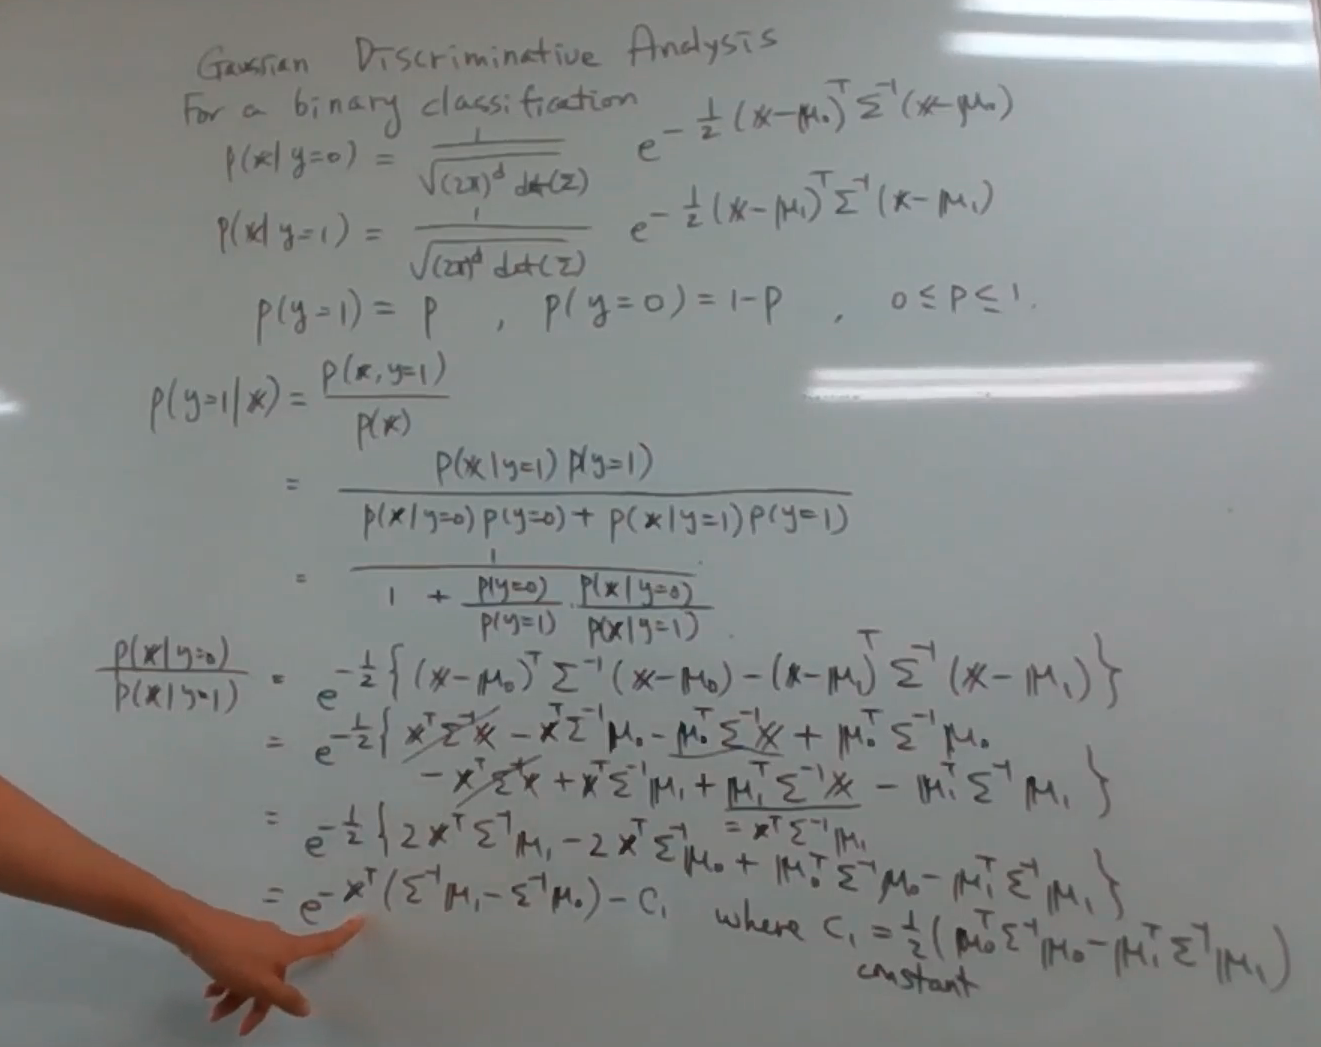 Gaussian Discriminative Analysis
For a binary classification
p(x|y=0) = 1/√((2π)^d det(Σ)) e^{-1/2 (x-μ₀)^T Σ^{-1} (x-μ₀)}
p(x|y=1) = 1/√((2π)^d det(Σ)) e^{-1/2 (x-μ₁)^T Σ^{-1} (x-μ₁)}
p(y=1) = p , p(y=0) = 1-p , 0 ≤ p ≤ 1.
p(y=1|x) = p(x,y=1)/p(x)
= p(x|y=1) p(y=1) / (p(x|y=0) p(y=0) + p(x|y=1) p(y=1))
= 1 / (1 + p(y=0)/p(y=1) · p(x|y=0)/p(x|y=1))
p(x|y=0)/p(x|y=1) = e^{-1/2 {(x-μ₀)^T Σ^{-1} (x-μ₀) - (x-μ₁)^T Σ^{-1} (x-μ₁)}}
= e^{-1/2 { x^T Σ^{-1} x - x^T Σ^{-1} μ₀ - μ₀^T Σ^{-1} x + μ₀^T Σ^{-1} μ₀
- x^T Σ^{-1} x + x^T Σ^{-1} μ₁ + μ₁^T Σ^{-1} x - μ₁^T Σ^{-1} μ₁ }
= x^T Σ^{-1} μ₁
= e^{-1/2 {2x^T Σ^{-1} μ₁ - 2x^T Σ^{-1} μ₀ + μ₀^T Σ^{-1} μ₀ - μ₁^T Σ^{-1} μ₁}}
= e^{-x^T (Σ^{-1} μ₁ - Σ^{-1} μ₀) - C₁} where C₁ = 1/2 (μ₀^T Σ^{-1} μ₀ - μ₁^T Σ^{-1} μ₁)
constant